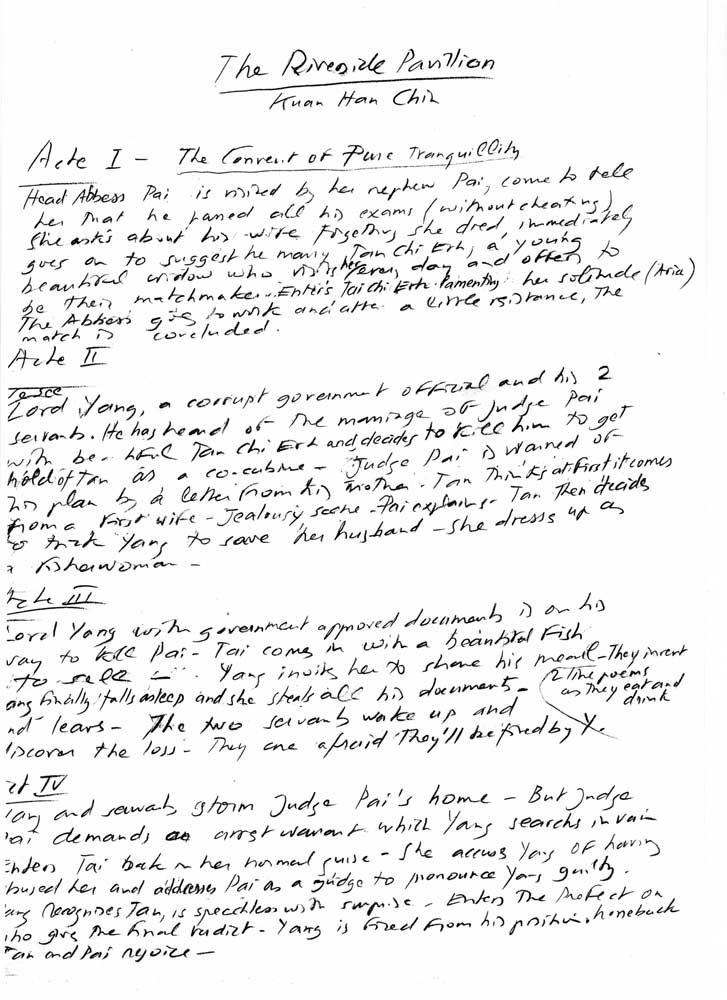 The Riverside Pavillion
Kuan Han Chin
Acte I - The Convent of Pure Tranquillity
Head Abbess Pai is visited by her nephew Pai, come to tell
her that he passed all his exams (without cheating)
She asks about his wife forgetting she died, immediately
goes on to suggest he marry Tan Chi Erh, a young
beautiful widow who visits her every day and offers to
be their matchmaker. Enters Tai Chi Erh lamenting her solitude (Aria)
The Abbess gets to work and after a little resistance, The
match is concluded.
Acte II
Lord Yang, a corrupt government official and his 2
servants. He has heard of the marriage of Judge Pai
with beautiful Tan Chi Erh and decides to kill him to get
hold of Tan as a concubine - Judge Pai is warned of
his plan by a letter from his mother. Tan Thinks at first it comes
from a first wife - Jealousy scene - Pai explains - Tan Then decides
to trick Yang to save her husband - She dresses up as
a fisherwoman -
Acte III
Lord Yang with government approved documents is on his
way to kill Pai - Tai comes in with a beautiful fish
to sell - Yang invites her to share his meal - They invent
2 line poems
as They eat and
drink
ang finally falls asleep and she steals all his documents -
nd leaves - The two servants wake up and
iscover the loss - They are afraid They'll be fired by Y.
ct IV
ang and servants storm Judge Pai's home - But Judge
Pai demands an arrest warrant which Yang searches in vain
Enters Tai back in her normal guise - She accuses Yang of having
bused her and addresses Pai as a judge to pronounce Yang guilty.
ang Recognises Tan, is speechless with surprise - Enters The Prefect on
horseback
who gives the final verdict - Yang is fired from his position.
Tan and Pai rejoice -